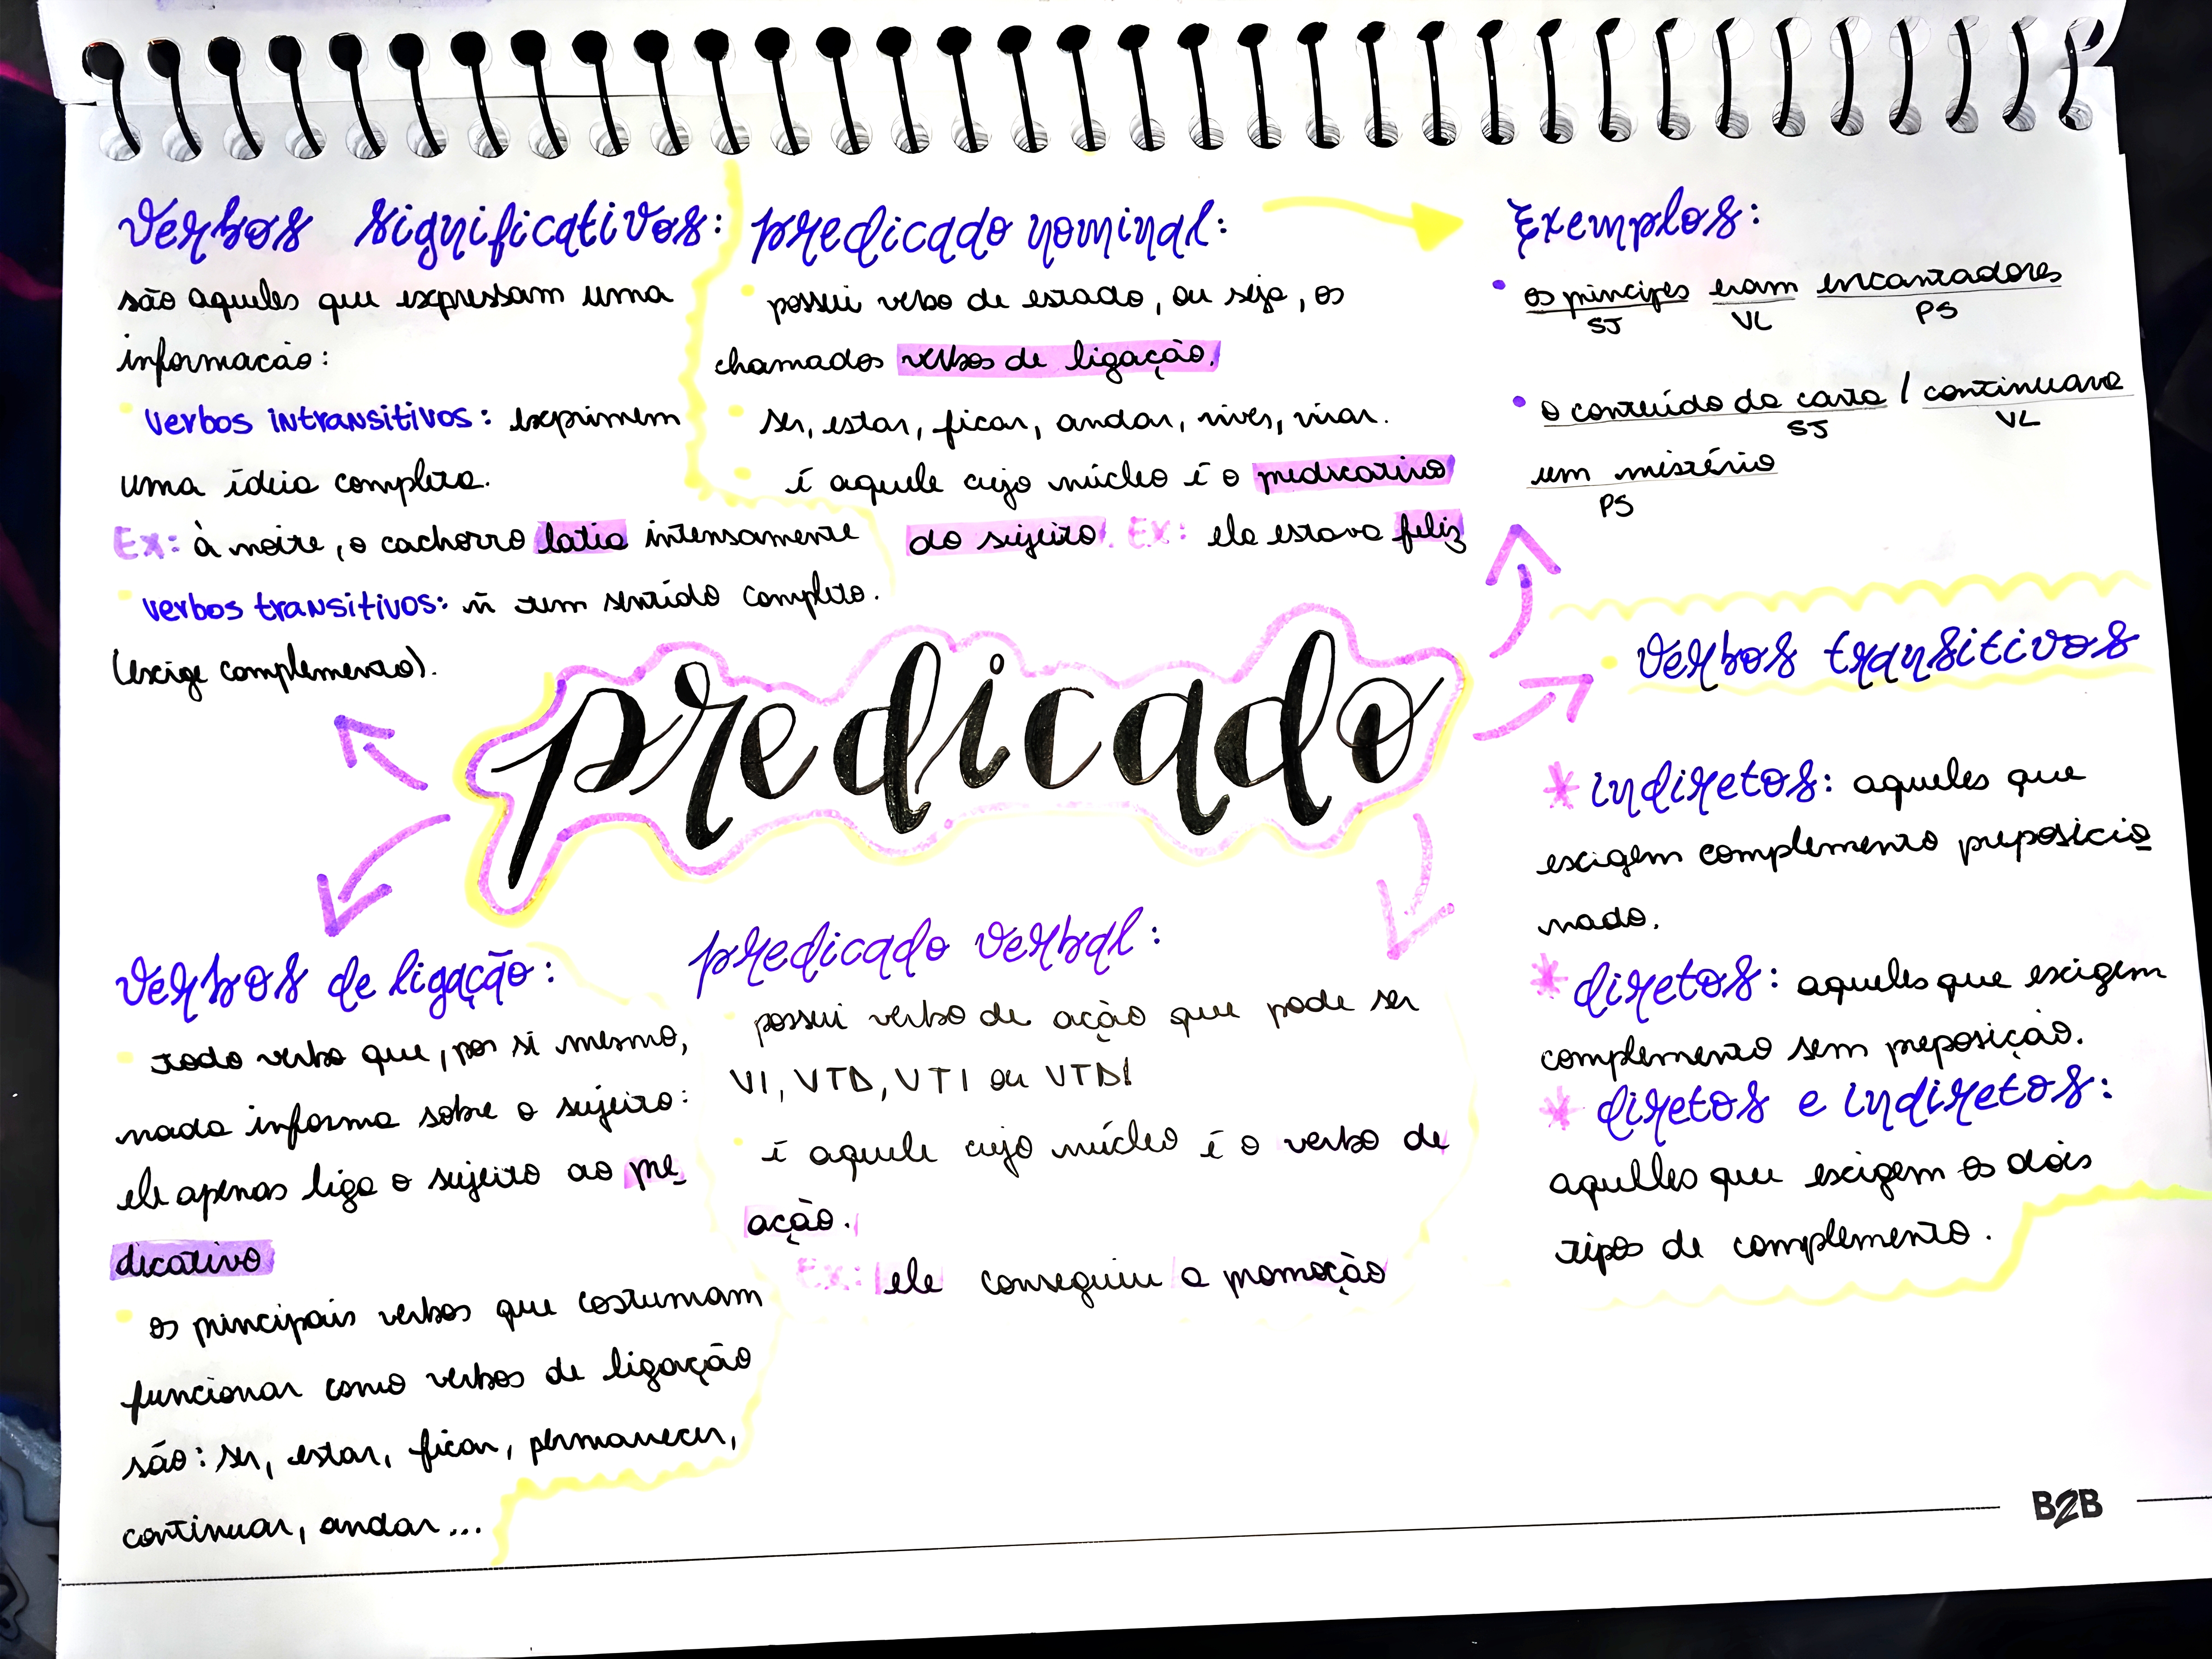 verbos significativos:
são aqueles que expressam uma
informacão:
verbos intransitivos: exprimem
uma ideia completa.
Ex: à noite, o cachorro latia intensamente
verbos transitivos: ñ tem sentido completo.
(exige complemento).
predicado nominal:
possui verbo de estado, ou seja, os
chamados verbos de ligação.
ser, estar, ficar, andar, viver, virar.
é aquele cujo núcleo é o predicativo
do sujeito. Ex: ela estava feliz
Exemplos:
os príncipes eram encantadores
SJ VL PS
o conteúdo da carta / continuava
SJ VL
um mistério
PS
predicado
verbos transitivos
* indiretos: aqueles que
exigem complemento preposicio
nado.
* diretos: aqueles que exigem
complemento sem preposição.
* diretos e indiretos:
aquelles que exigem os dois
tipos de complemento.
verbos de ligação:
todo verbo que, por si mesmo,
nada informa sobre o sujeito:
ele apenas liga o sujeito ao pre
dicativo
os principais verbos que costumam
funcionar como verbos de ligação
são: ser, estar, ficar, permanecer,
continuar, andar...
predicado verbal:
possui verbo de ação que pode ser
VI, VTD, VTI ou VTDI
é aquele cujo núcleo é o verbo de
ação.
Ex: ele conseguiu a promoção
B2B